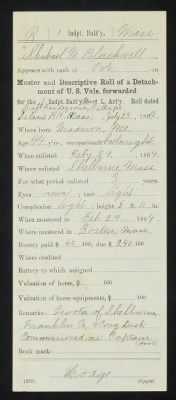 R | 1 | Indpt. Batt'y, | Mass
M Blackwell
Appears with rank of Pvt on
Muster and Descriptive Roll of a Detachment of U. S. Vols. forwarded
for the 1 Indpt. Batt'y Arty. Roll dated
Island B. H. Mass. July 23, 1864.
Where born
Age 44 y'rs; occupation
When enlisted Feby 29, 1864
Where enlisted Shelburne Mass
For what period enlisted 3 years.
Eyes; hair light
Complexion light; height 5 ft. 11 in.
When mustered in Feb 29, 1864
Where mustered in Boston, Mass
Bounty paid $ 60 100; due $ 240 100
Where credited
Battery to which assigned
Valuation of horse, $ 100
Valuation of horse equipments, $ 100
Remarks: Quota of Shelburne
Franklin Co 9 Cong Dist
Commissioned as Captain
Book mark:
Hodge
(339) Copyist.